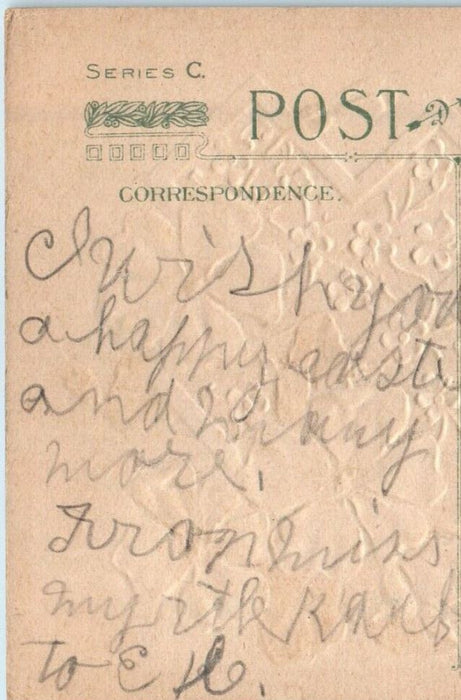 SERIES C.
POST
CORRESPONDENCE.
I wish you
a happy easte
and many
more.
From miss
myrtle
to E